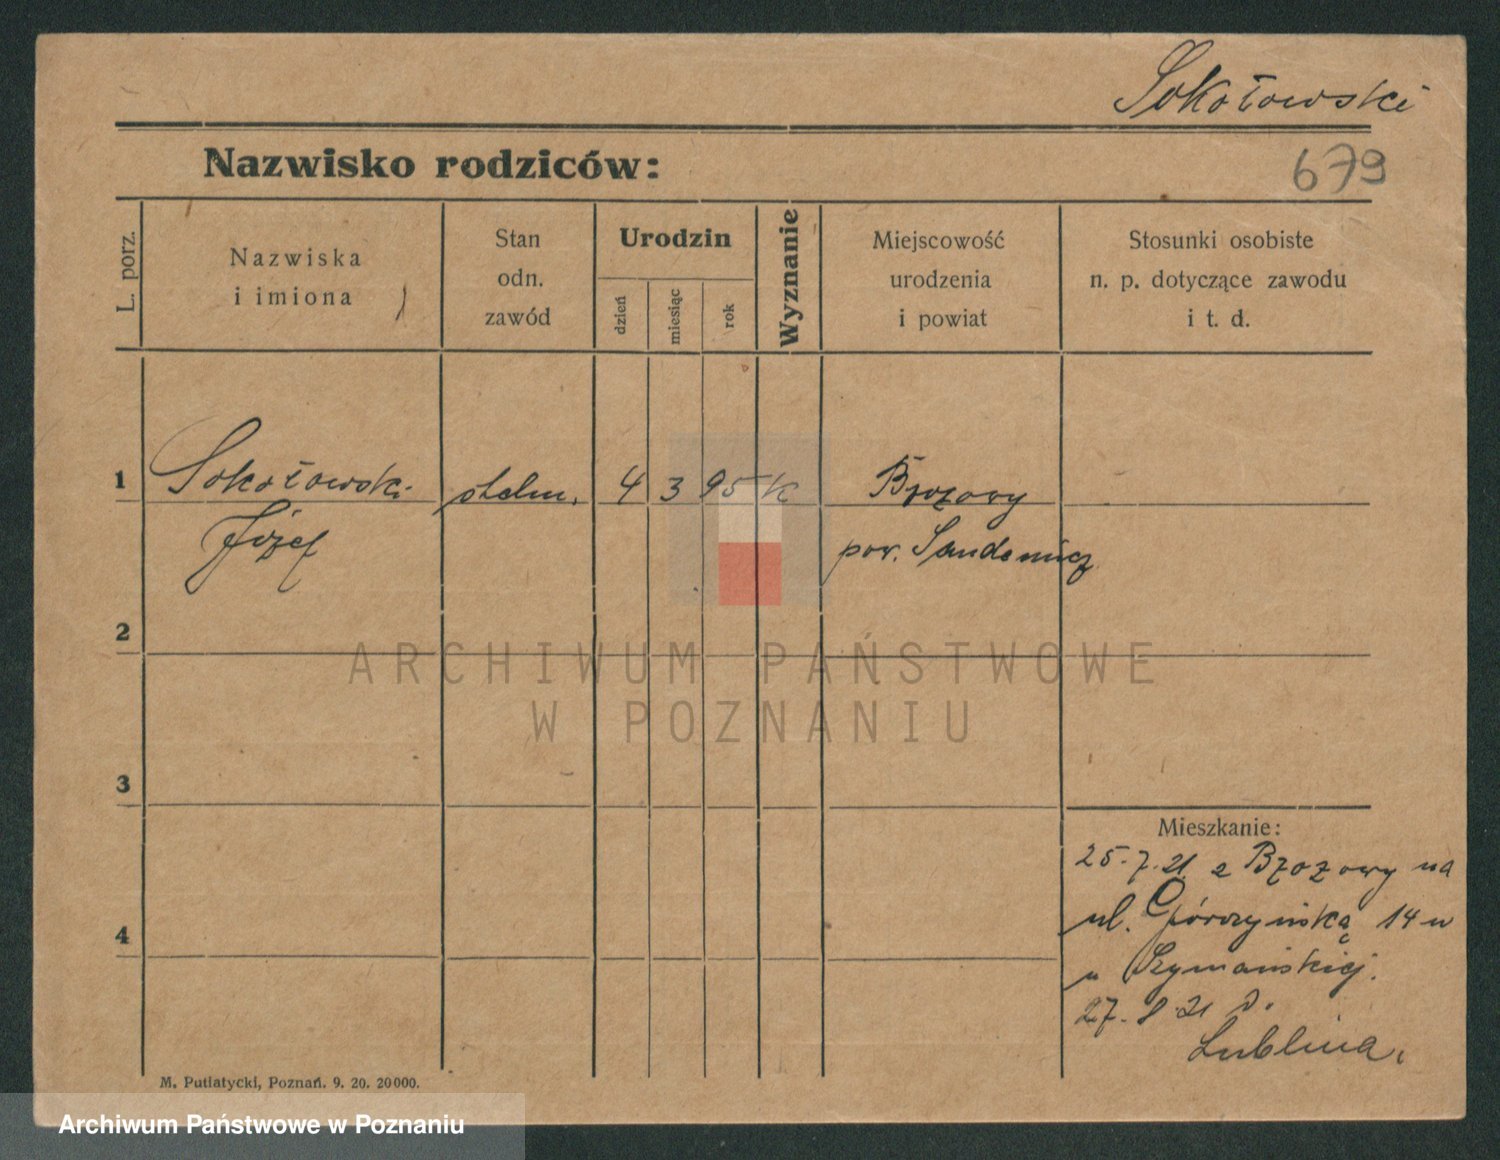 Sokołowski
Nazwisko rodziców:
679
L. porz.
Nazwiska
i imiona
Stan
odn.
zawód
Urodzin
dzień
miesiąc
rok
Wyznanie
Miejscowość
urodzenia
i powiat
Stosunki osobiste
n. p. dotyczące zawodu
i t. d.
1 Sokołowski stelm. 4 3 95 K Brzozowy
Józef pow. Sandomierz
2
3
4
Mieszkanie:
25.7.21 z Brzozowy na
ul. Górczyńską 14 w
u Szymańskiej.
27. 8 21 d.
Lublina.
M. Putiatycki, Poznań. 9. 20. 20000.
ARCHIWUM PAŃSTWOWE
W POZNANIU
Archiwum Państwowe w Poznaniu